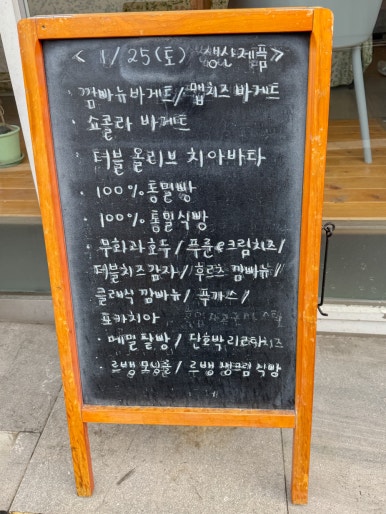 < 1/25(토) 생산제품 >
· 깜빠뉴바게트/ 맵치즈 바게트
· 쇼콜라 바게트
· 더블 올리브 치아바타
· 100%통밀빵
· 100%통밀식빵
· 무화과호두/ 푸룬e크림치즈/
더블치즈감자/ 후르츠 깜빠뉴/
클래식 깜빠뉴/ 푸가스/
포카치아
· 메밀 탕빵/ 단호박 리코타치즈
· 르뱅 모닝롤/ 르뱅 생크림 식빵